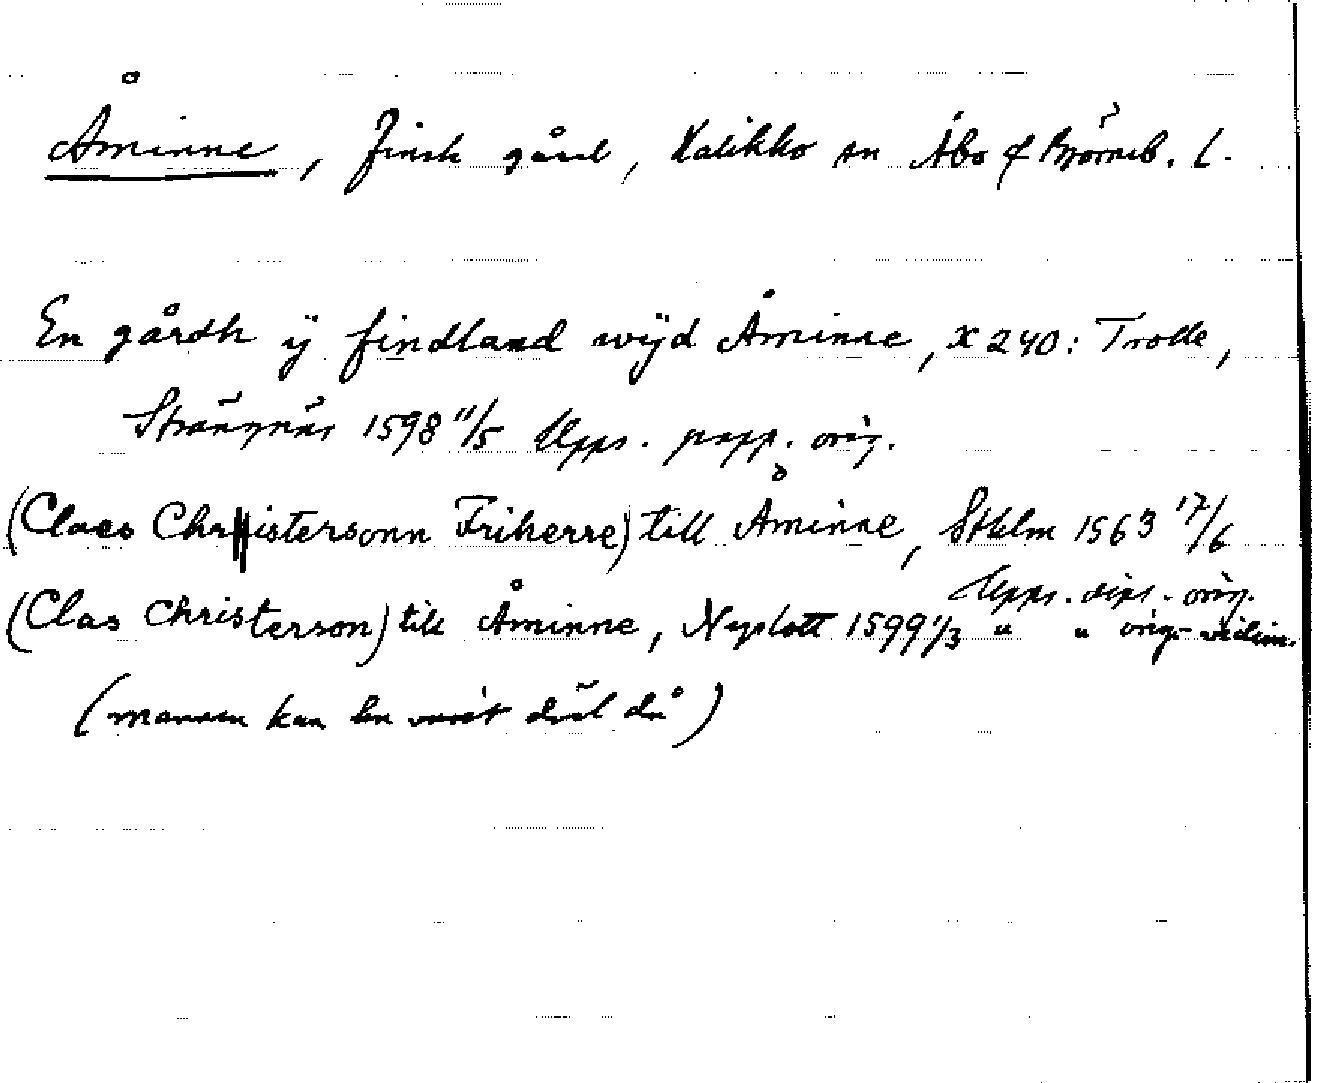 Åminne, Finsk gård, Halikko sn Åbo & Björneb. l.
En gårdh ÿ findland wijd Åminne, X 240: Trolle,
Strängnäs 1598 11/5 Upps. papp. orig.
(Claes Christersonn Friherre) till Åminne, Sthlm 1563 17/6
Upps. dipl. orig.
(Clas Christerson) till Åminne, Nyslott 1599 1/3 " " orig. vidim.
(mannen kan ha varit död då)